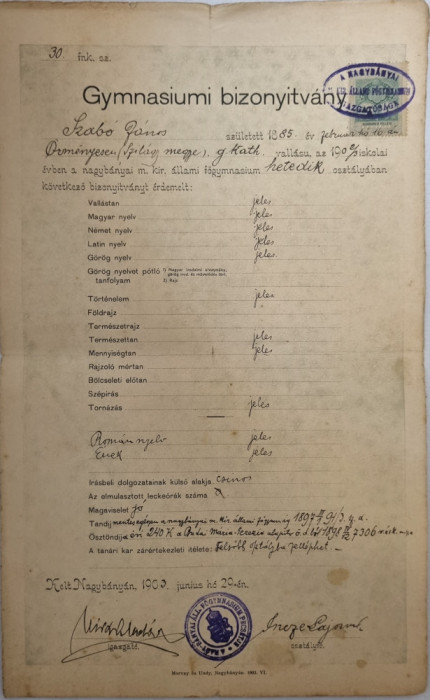 30. ink. sz.
A NAGYBÁNYAI
M. KIR. ÁLLAMI FŐGYMNASIUM
IGAZGATÓSÁGA
Gymnasiumi bizonyitvány
Szabó János született 1885 év február hó 16 án
(Szilágy megye), g. kath. vallásu, az 190 iskolai
évben a nagybányai m. kir. állami főgymnasium hetedik osztályában
következő bizonyitványt érdemelt:
Vallástan jeles
Magyar nyelv jeles
Német nyelv jeles
Latin nyelv jeles
Görög nyelv jeles
Görög nyelvet pótló tanfolyam
2) Rajz
Történelem jeles
Földrajz
Természetrajz
Természettan jeles
Mennyiségtan jeles
Rajzoló mértan
Bölcseleti előtan
Szépirás
Tornázás jeles
Román nyelv jeles
Ének jeles
Irásbeli dolgozatainak külső alakja csinos
Az elmulasztott leckeórák száma
Magaviselet jó
Tandíj a nagybányai m. kir. állami főgymn. 1897
Ösztöndíja évi 240 K a Mária Terézia 1898 7306
A tanári kar zárértekezleti itélete: Felsőbb osztályba felléphet.
Kelt Nagybányán, 1903. junius hó 29-én.
igazgató
Incze Lajos
osztályfő
Morvay és Undy, Nagybányán 1903. VI.